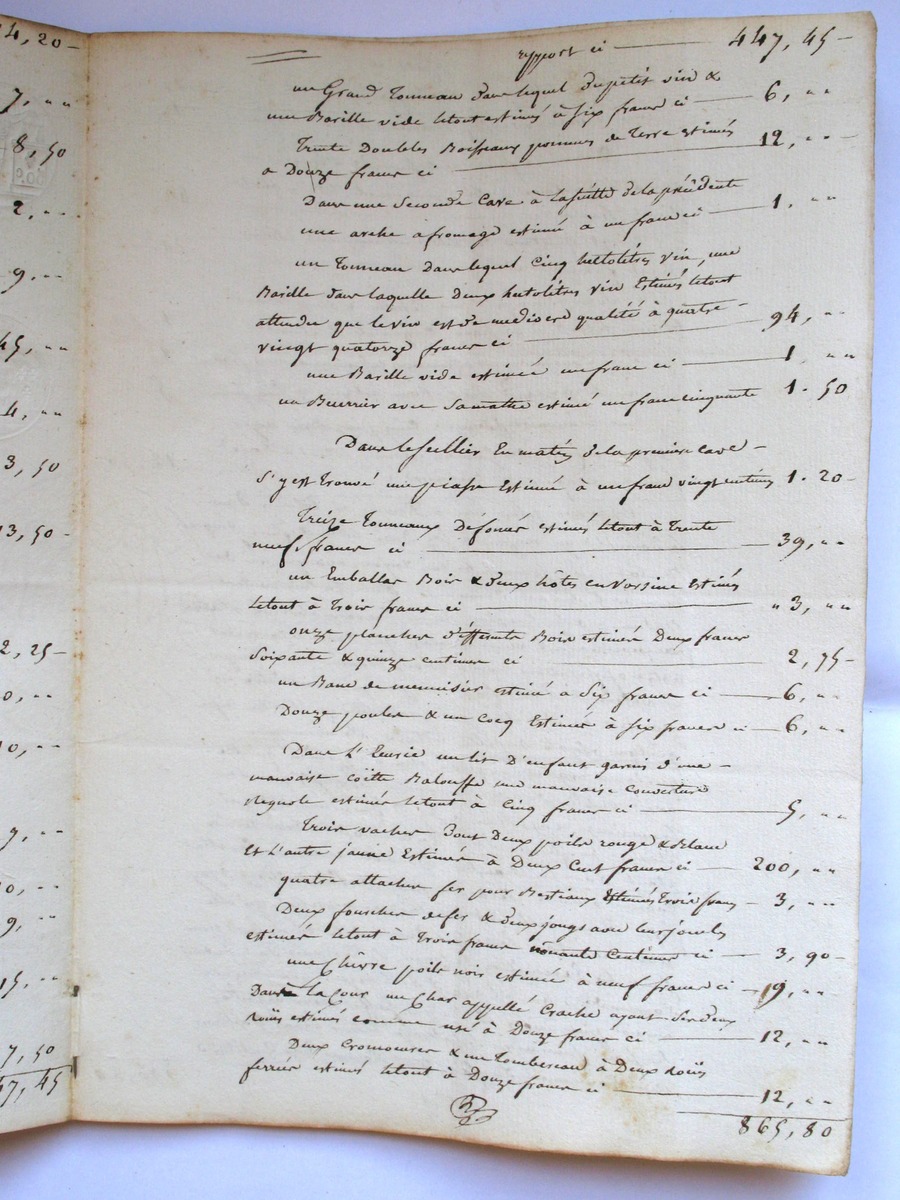 4, 20 -
7, " "
8, 50
2, " "
9, " "
45, " "
4, " "
3, 50
13, 50 -
2, 25 -
0, " "
10, " "
7, " "
10, " "
9, " "
15, " "
7, 50
47, 45
report ci 447, 45 -
un Grand Tonneau dans lequel du petit vin &
une Barille vide letout estimés à six francs ci 6, " "
Trente Doubles Boisseaux pommes de Terre estimés
a Douze francs ci 12, " "
Dans une Seconde Cave à la suitte de la précédente
une arche a fromage estimé à un franc ci 1, " "
un Tonneau dans lequel Cinq hectolitres vin, une
Barille dans laquelle Deux hectolitres vin Estimés letout
attendu que le vin est de mediocre qualité à quatre -
vingt quatorze francs ci 94, " "
une Barille vide estimée un franc ci 1 " "
un Beurrier avec sa estimé un franc cinquante 1 . 50
Dans le Seillier En de la premiere cave -
s'y est trouvé une Estimé à un franc vingt centimes 1 . 20 -
Treize Tonneaux Défoncés estimés letout à Trente
neuf francs ci 39, " "
un Emballas Bois & deux hôtes en Vorsine Estimés
letout à Trois francs ci " 3, " "
onze planches différents Bois estimés Deux francs
Soixante & quinze centimes ci 2, 75 -
un Banc de menuisier estimé a Six francs ci 6, " "
Douze poules & un Cocq Estimés à six francs ci 6, " "
Dans L'Ecurie un lit D'enfant garni d'une -
mauvaise coïtte Balouffe une mauvaise Couverture
estimés letout à Cinq francs ci 5, " "
Trois vaches Dont Deux poils rouge & Blanc
et L'autre jaune Estimés à Deux Cent francs ci 200, " "
quatre attaches fer pour Bestiaux Estimés Trois francs - 3, " "
Deux fourches de fer & deux jougs avec leurs
estimés letout à Trois francs nonante Centimes ci 3, 90 -
une Chèvre poils noir estimée à neuf francs ci 9, " "
Dans la Cour un Char appellé Crache ayant Ses deux
roües estimés comme usé à Douze francs ci 12, " "
Deux & un Tombereau à Deux roües
ferrées estimés letout à Douze francs ci 12, " "
865, 80